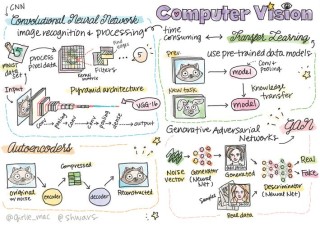 Computer Vision
CNN
Convolutional Neural Network
image recognition & processing
process
pixel data
filters
5
Input
Pyramid architecture
VGG-16
output
time
consuming
Transfer Learning
use pre-trained data models
Pre-
model
Conv +
pooling
knowledge
transfer
New task
model
Autoencoders
Compressed
original
w/noise
encoder
decoder
Reconstructed
Generative Adversarial
Networks
GAN
Noise
vector
Generator
(Neural Net)
Generated
Real
Fake
Sample
Discriminator
(Neural Net)
Real data
@girlie_mac @shwars